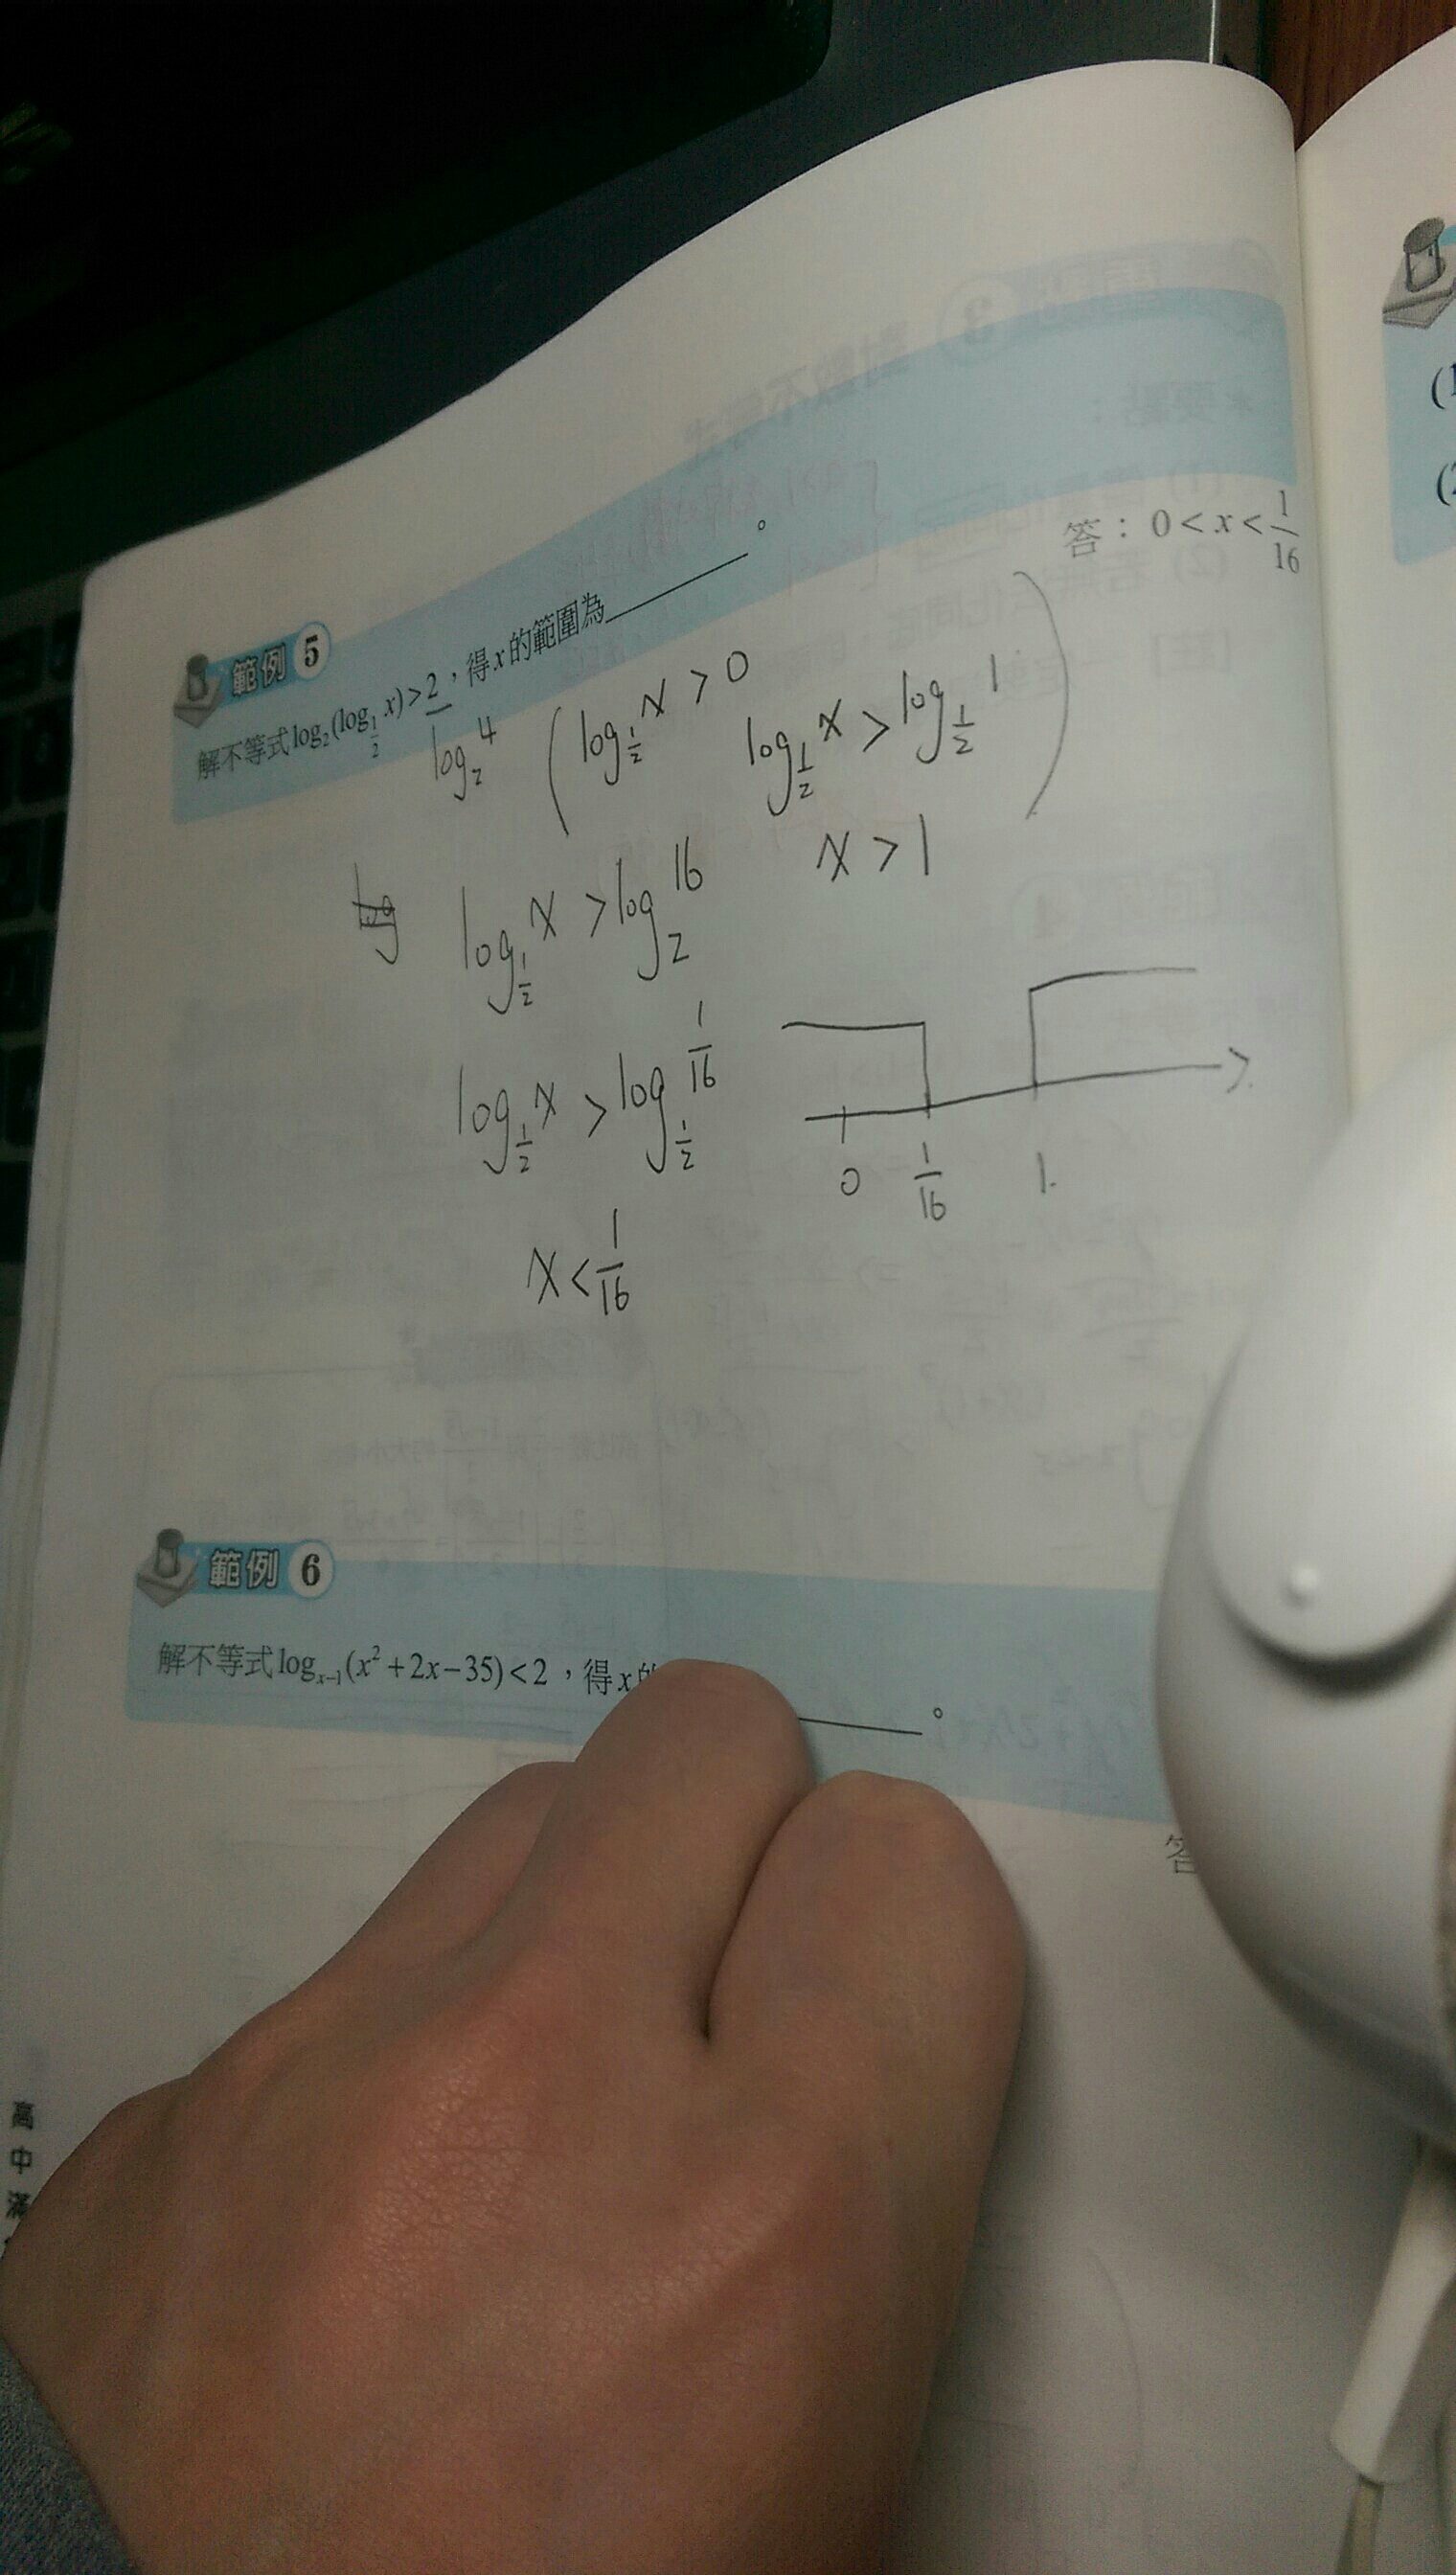 範例 5
解不等式log₂(log_{1/2} x)>2，得x的範圍為______。
答：0<x<1/16
log₂4 (log_{1/2} x>0 log_{1/2} x>log_{1/2} 1)
x>1
log_{1/2} x>log₂16
log_{1/2} x>log_{1/2} 1/16
0 1/16 1
x<1/16
範例 6
解不等式log_{x-1}(x²+2x-35)<2，得x的______。
答
高中滿
(1
(2